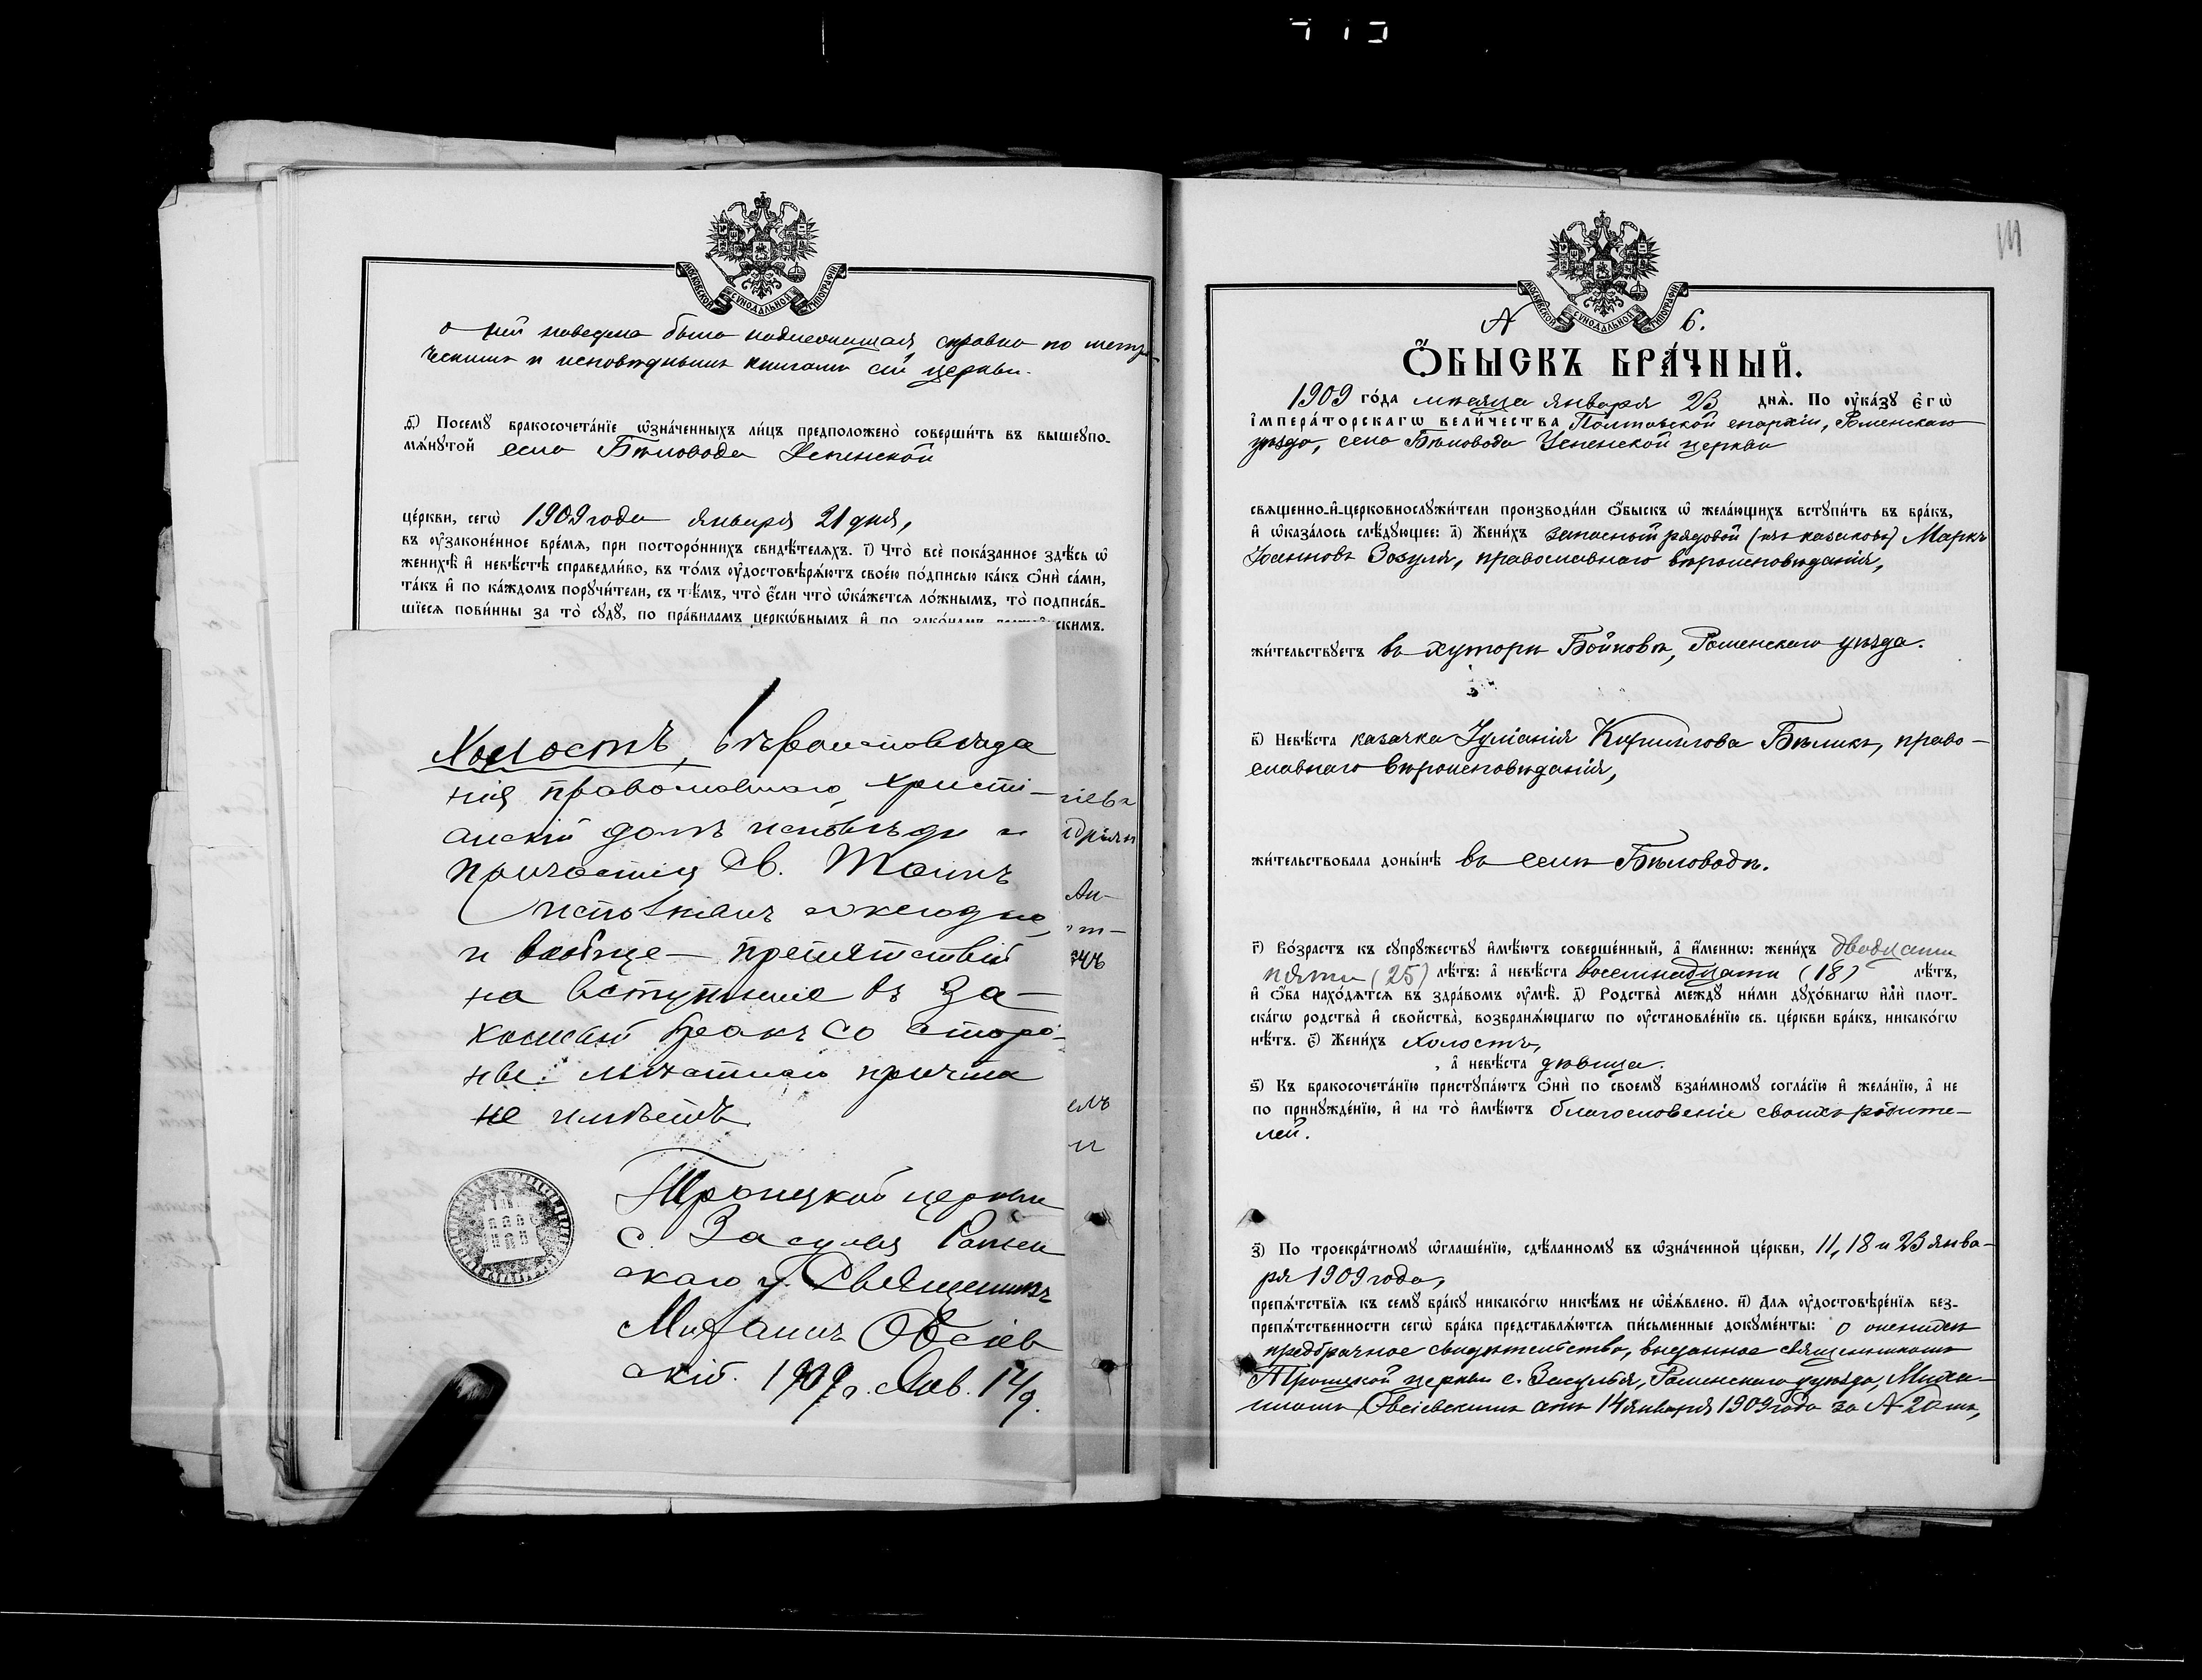 МОСКОВСКОЙ СѴНОДАЛЬНОЙ ТИПОГРАФІИ
о ней поведена была надлежащая справка по метри-
ческимъ и исповѣднымъ книгамъ сей церкви.
ѳ҃) Посемꙋ̀ бракосочета́нїе ѡ҆зна́ченныхъ ли́цъ предположено̀ соверши́ть въ вышеꙋпо-
мѧ́нꙋтой села Бѣловода Успенской
це́ркви, сегѡ̀ 1909 года января 21 дня,
въ ᲂу҆зако́ненное вре́мѧ, при посторо́ннихъ свидѣ́телѧхъ. і҃) Что̀ всѐ пока́занное здѣ́сь ѡ҆
женихѣ̀ и҆ невѣ́стѣ справедли́во, въ то́мъ ᲂу҆достовѣрѧ́ютъ свое́ю по́дписью ка́къ ѻ҆нѝ са́ми,
та́къ и҆ по ка́ждомъ порꙋчи́тели, съ тѣ́мъ, что̀ є҆́сли что̀ ѡ҆ка́жетсѧ ло́жнымъ, то̀ подписа́в-
шїесѧ пови́нны за то̀ сꙋдꙋ̀, по пра́виламъ церко́внымъ и҆ по зако́намъ
скимъ.
Холостъ, вѣроисповѣда
нія православнаго, христі-
анскій долгъ исповѣди и
причастія Св. Таинъ
исполнялъ ежегодно,
и вообще — препятствій
на вступленіе въ за-
конный бракъ со сторо-
ны мѣстнаго причта
не имѣетъ.
Троицкой церкви
с. Засулья Ромен
скаго у. Священникъ
Михаилъ Овсіев
скій. 1909 г. Янв. 14 д.
111
МОСКОВСКОЙ СѴНОДАЛЬНОЙ ТИПОГРАФІИ
№ 6.
Ѻ҆БЫСКЪ БРА́ЧНЫЙ.
1909 го́да мѣсяца января 23 днѧ̀. По ᲂу҆ка́зꙋ є҆гѡ̀
і҆мпера́торскагѡ вели́чества, Полтавской епархіи, Роменскаго
уѣзда, села Бѣловода Успенской церкви
свѧщенно-и҆-церковнослꙋжи́тели производи́ли ѻ҆́быскъ ѡ҆ жела́ющихъ встꙋпи́ть въ бра́къ,
и҆ ѡ҆каза́лось слѣ́дꙋющее: а҃) Жени́хъ запасный рядовой (изъ казаковъ) Маркъ
Іоанновъ Зозуля, православнаго вѣроисповѣданія,
жи́тельствꙋетъ въ хуторѣ Бойковѣ, Роменскаго уѣзда.
в҃) Невѣ́ста казачка Іуліанія Кириллова Бѣликъ, право-
славнаго вѣроисповѣданія,
жи́тельствовала доны́нѣ въ селѣ Бѣловодѣ.
г҃) Во́зрастъ къ сꙋпрꙋ́жествꙋ и҆мѣ́ютъ соверше́нный, а҆ и҆́меннѡ: жени́хъ двадцати
пяти (25) лѣ́тъ: а҆ невѣ́ста восемнадцати (18) лѣ́тъ,
и҆ ѻ҆́ба нахо́дѧтсѧ въ здра́вомъ ᲂу҆мѣ̀. д҃) Родства̀ междꙋ̀ ни́ми дꙋхо́внагѡ и҆лѝ плот-
ска́гѡ родства̀ и҆ свойства̀, возбранѧ́ющагѡ по ᲂу҆становле́нїю св. це́ркви бра́къ, никако́гѡ
нѣ́тъ. є҃) Жени́хъ холостъ,
а҆ невѣ́ста дѣвица.
ѕ҃) Къ бракосочета́нїю пристꙋпа́ютъ ѻ҆нѝ по своемꙋ̀ взаи́мномꙋ согла́сїю и҆ жела́нїю, а҆ не
по принꙋжде́нїю, и҆ на то̀ и҆мѣ́ютъ благословеніе своихъ родите-
лей.
з҃) По троекра́тномꙋ ѡ҆глаше́нїю, сдѣ́ланномꙋ въ ѡ҆зна́ченной це́ркви, 11, 18 и 23 янва-
ря 1909 года,
препѧ́тствїѧ къ семꙋ̀ бра́кꙋ никако́гѡ никѣ́мъ не ѡ҆б̾ѧ́влено. и҃) Длѧ ᲂу҆достовѣре́нїѧ без-
препѧ́тственности сегѡ̀ бра́ка представлѧ́ютсѧ пи́сьменные докꙋме́нты: о женихѣ
предбрачное свидѣтельство, выданное священникомъ
Троицкой церкви с. Засулья, Роменскаго уѣзда, Миха-
иломъ Овсіевскимъ отъ 14 января 1909 года за № 20мъ,